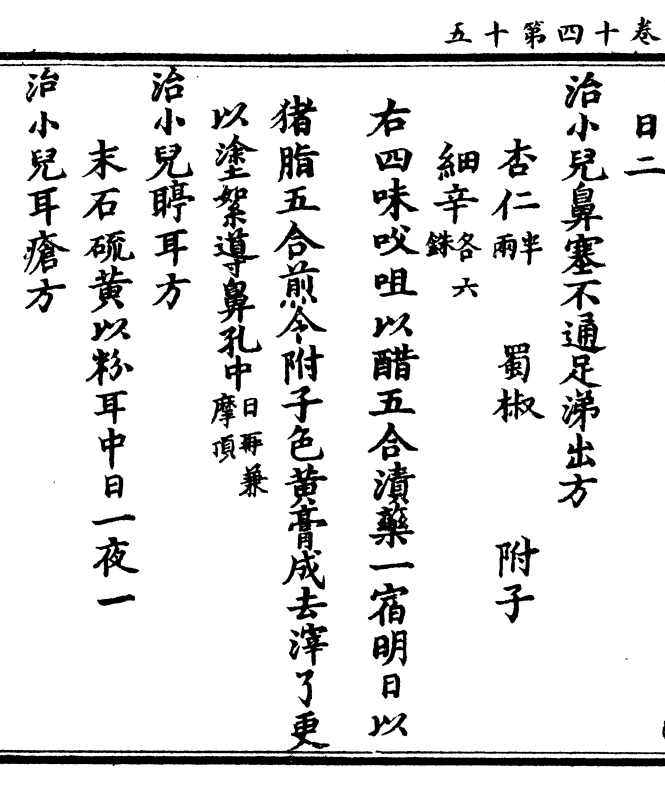 卷十四第十五
日二
治小兒鼻塞不通足涕出方
杏仁半兩 蜀椒 附子
細辛各六銖
右四味㕮咀以醋五合漬藥一宿明日以
猪脂五合煎令附子色黄膏成去滓了更
以塗絮導鼻孔中日再兼摩頂
治小兒聤耳方
末石硫黄以粉耳中日一夜一
治小兒耳瘡方